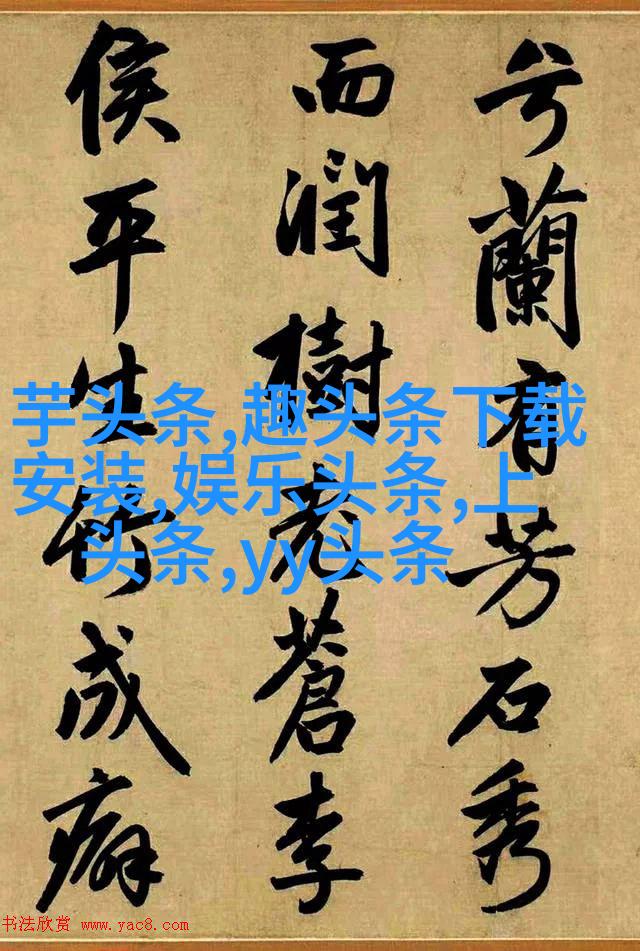 兮蘭有芳石秀
而潤樹老蒼李
侯平生竹成癖
芋头条,趣头条下载
安装,娱乐头条,上
头条,yy头条
书法欣赏 www.yac8.com